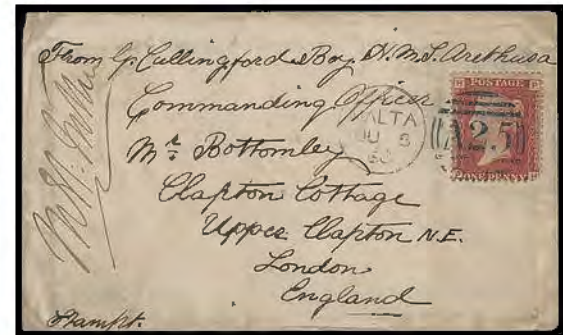 From G. Cullingford Boy H.M.S. Arethusa
Commanding Officer
Mr. Bottomley
Clapton Cottage
Upper Clapton N.E.
London
England
Stampt.
MALTA
JU 8
POSTAGE
A25
ONE PENNY